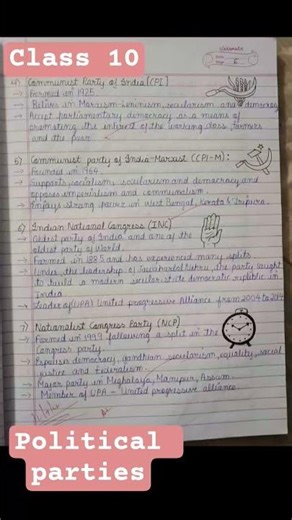 Class 10
4) Communist Party of India (CPI)
→ Formed in 1925.
→ Belives in Marxism-Leninism, secularism and democracy
→ Accept parliamentary democracy as a means of
promoting the interest of the working class, farmers
and the poor
5) Communist party of India-Marxist (CPI-M):
→ Founded in 1964.
→ Supports socialism, secularism and democracy and
opposes imperialism and communalism.
→ Enjoys strong in West Bengal, Kerala & Tripura.
6) Indian National Congress (INC)
→ Oldest party of India and one of the
oldest party of World.
→ Formed in 1885 and has experienced many splits
→ Under the leadership of Jawaharlal Nehru, the party sought
to build a modern secular democratic republic in
India
→ Leader of (UPA) United progressive Alliance from 2004 to
7) Nationalist Congress Party (NCP)
→ Formed in 1999 following a split in the
Congress party.
→ Espouses democracy, gandhian secularism, equality, social
justice and Federalism.
→ Major party in Meghalaya, Manipur, Assam
→ Member of UPA - United progressive alliance.
Political
parties